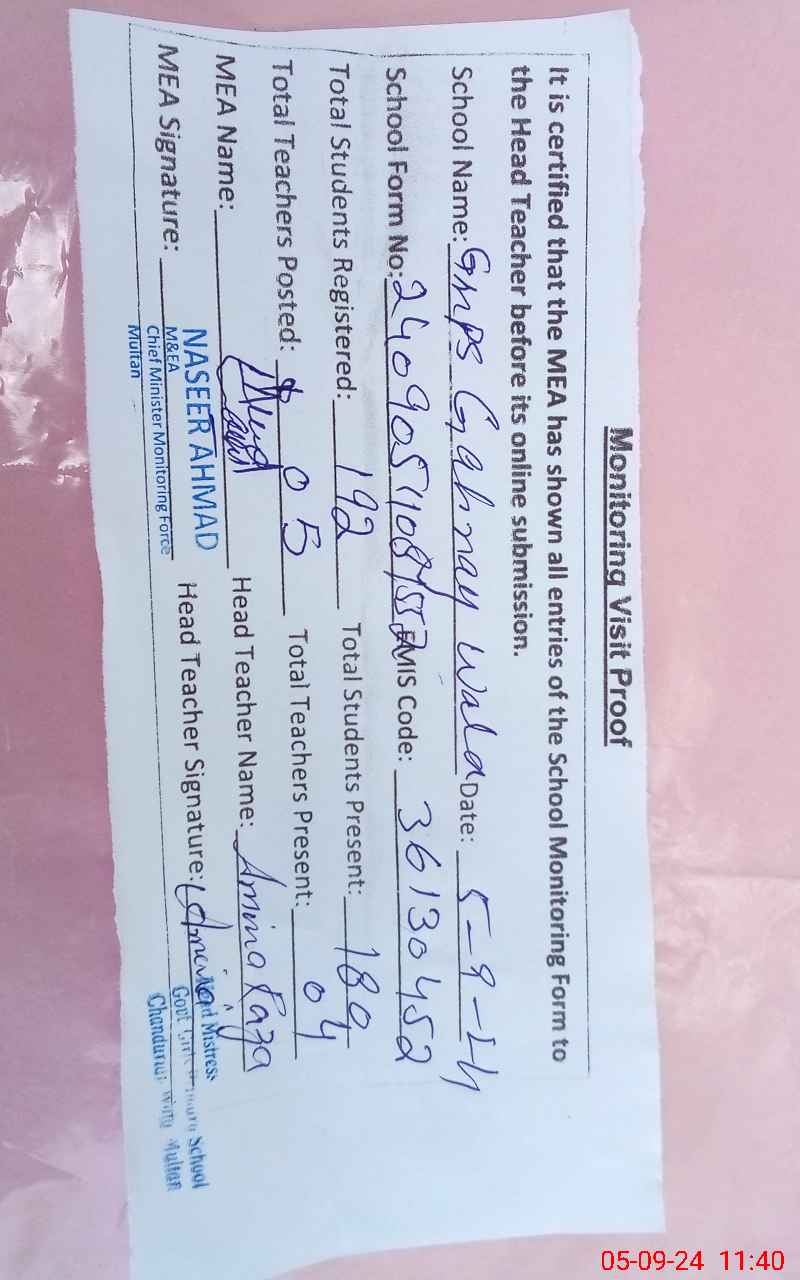 Monitoring Visit Proof
It is certified that the MEA has shown all entries of the School Monitoring Form to
the Head Teacher before its online submission.
School Name: Gmps Gahnay Wala Date: 5-9-24
School Form No: EMIS Code: 36130452
Total Students Registered: 192 Total Students Present: 180
Total Teachers Posted: 05 Total Teachers Present: 04
MEA Name: Head Teacher Name: Amina Raza
MEA Signature: Head Teacher Signature: Amina
NASEER AHMAD
M&EA
Chief Minister Monitoring Force
Multan
Head Mistress
Govt Girls Primary School
Multan
05-09-24 11:40